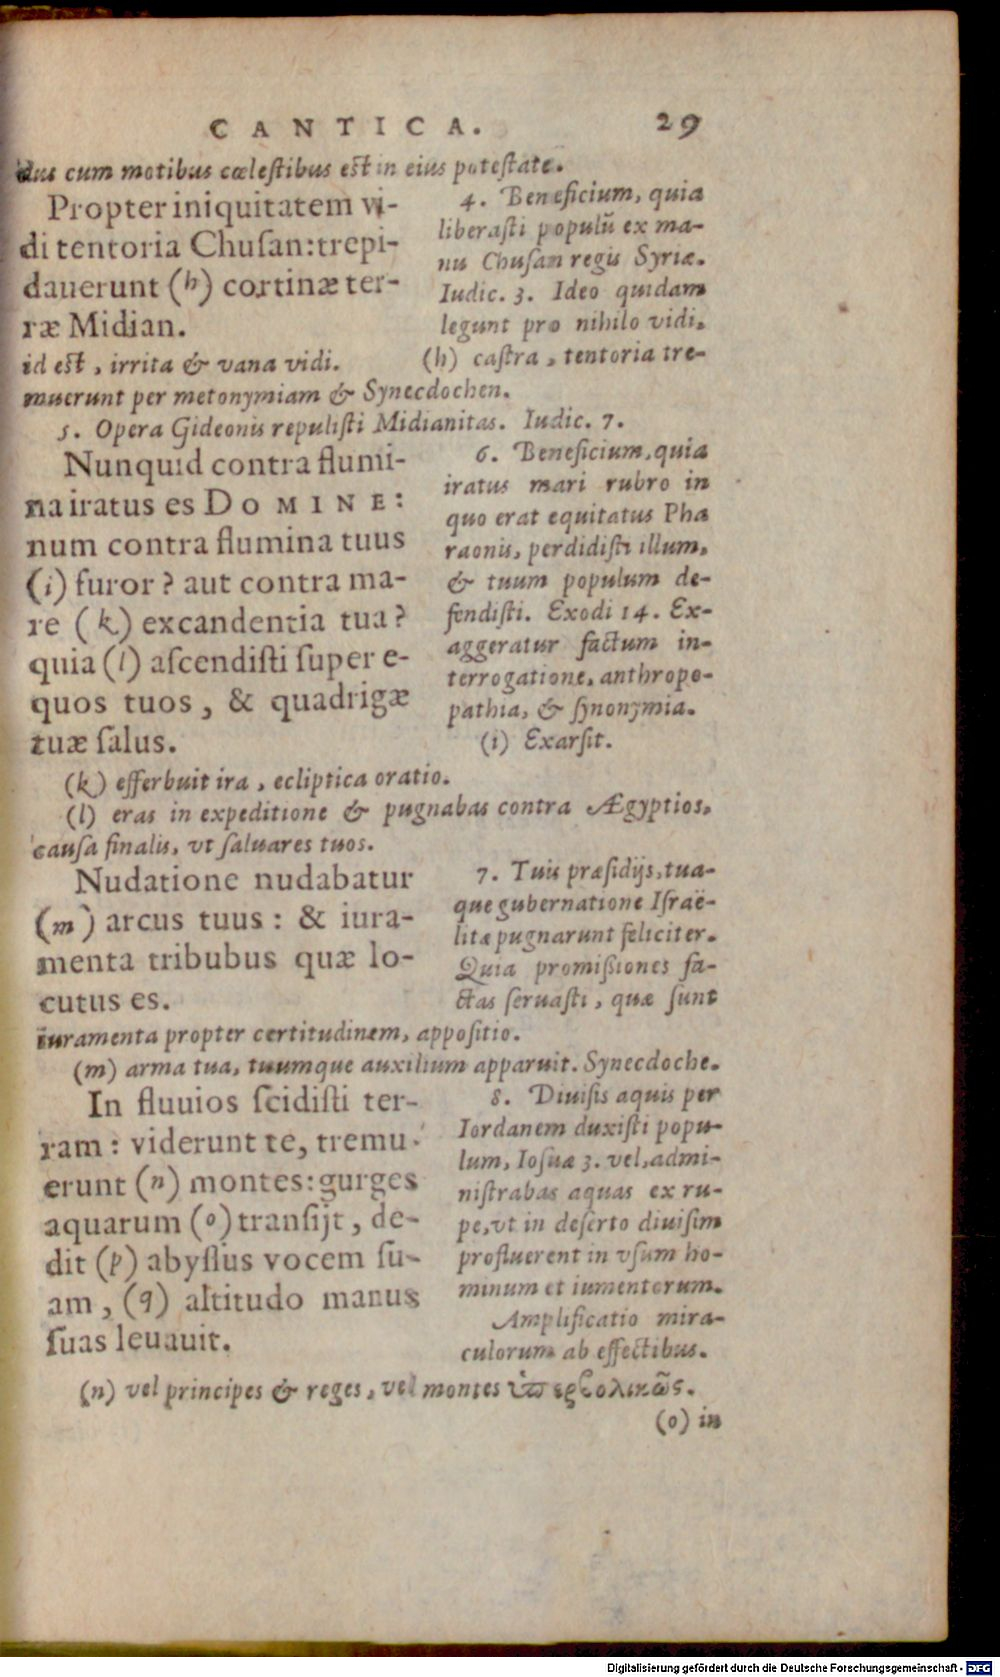 CANTICA. 29
dus cum motibus cœlestibus est in eius potestate.
Propter iniquitatem vi-
di tentoria Chusan: trepi-
dauerunt (h) cortinæ ter-
ræ Midian.
4. Beneficium, quia
liberasti populũ ex ma-
nu Chusan regis Syriæ.
Iudic. 3. Ideo quidam
legunt pro nihilo vidi,
id est, irrita & vana vidi.
(h) castra, tentoria tre-
muerunt per metonymiam & Synecdochen.
5. Opera Gideonis repulisti Midianitas. Iudic. 7.
Nunquid contra flumi-
na iratus es DOMINE:
num contra flumina tuus
(i) furor? aut contra ma-
re (k) excandentia tua?
quia (l) ascendisti super e-
quos tuos, & quadrigæ
tuæ salus.
6. Beneficium, quia
iratus mari rubro in
quo erat equitatus Pha
raonis, perdidisti illum,
& tuum populum de-
fendisti. Exodi 14. Ex-
aggeratur factum in-
terrogatione, anthropo-
pathia, & synonymia.
(i) Exarsit.
(k) efferbuit ira, ecliptica oratio.
(l) eras in expeditione & pugnabas contra Ægyptios,
causa finalis, vt saluares tuos.
Nudatione nudabatur
(m) arcus tuus: & iura-
menta tribubus quæ lo-
cutus es.
7. Tuis præsidijs, tua-
que gubernatione Israë-
litæ pugnarunt feliciter.
Quia promissiones fa-
ctas seruasti, quæ sunt
iuramenta propter certitudinem, appositio.
(m) arma tua, tuumque auxilium apparuit. Synecdoche.
In fluuios scidisti ter-
ram: viderunt te, tremu
erunt (n) montes: gurges
aquarum (o) transijt, de-
dit (p) abyssus vocem su-
am, (q) altitudo manus
suas leuauit.
8. Diuisis aquis per
Iordanem duxisti popu-
lum, Iosuæ 3. vel, admi-
nistrabas aquas ex ru-
pe, vt in deserto diuisim
profluerent in vsum ho-
minum et iumentorum.
Amplificatio mira-
culorum ab effectibus.
(n) vel principes & reges, vel montes ὑπερβολικῶς.
(o) in
Digitalisierung gefördert durch die Deutsche Forschungsgemeinschaft - DFG